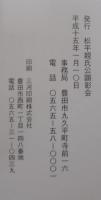 平成十五年一月一〇日
発行　松平親氏公顕彰会
事務局　豊田市九久平町寺前一六
電話　〇五六五-五八-〇〇〇一
印刷　三河印刷株式会社
豊田市西町一丁目一四八番地
電話　〇五六五-三一-〇四三九